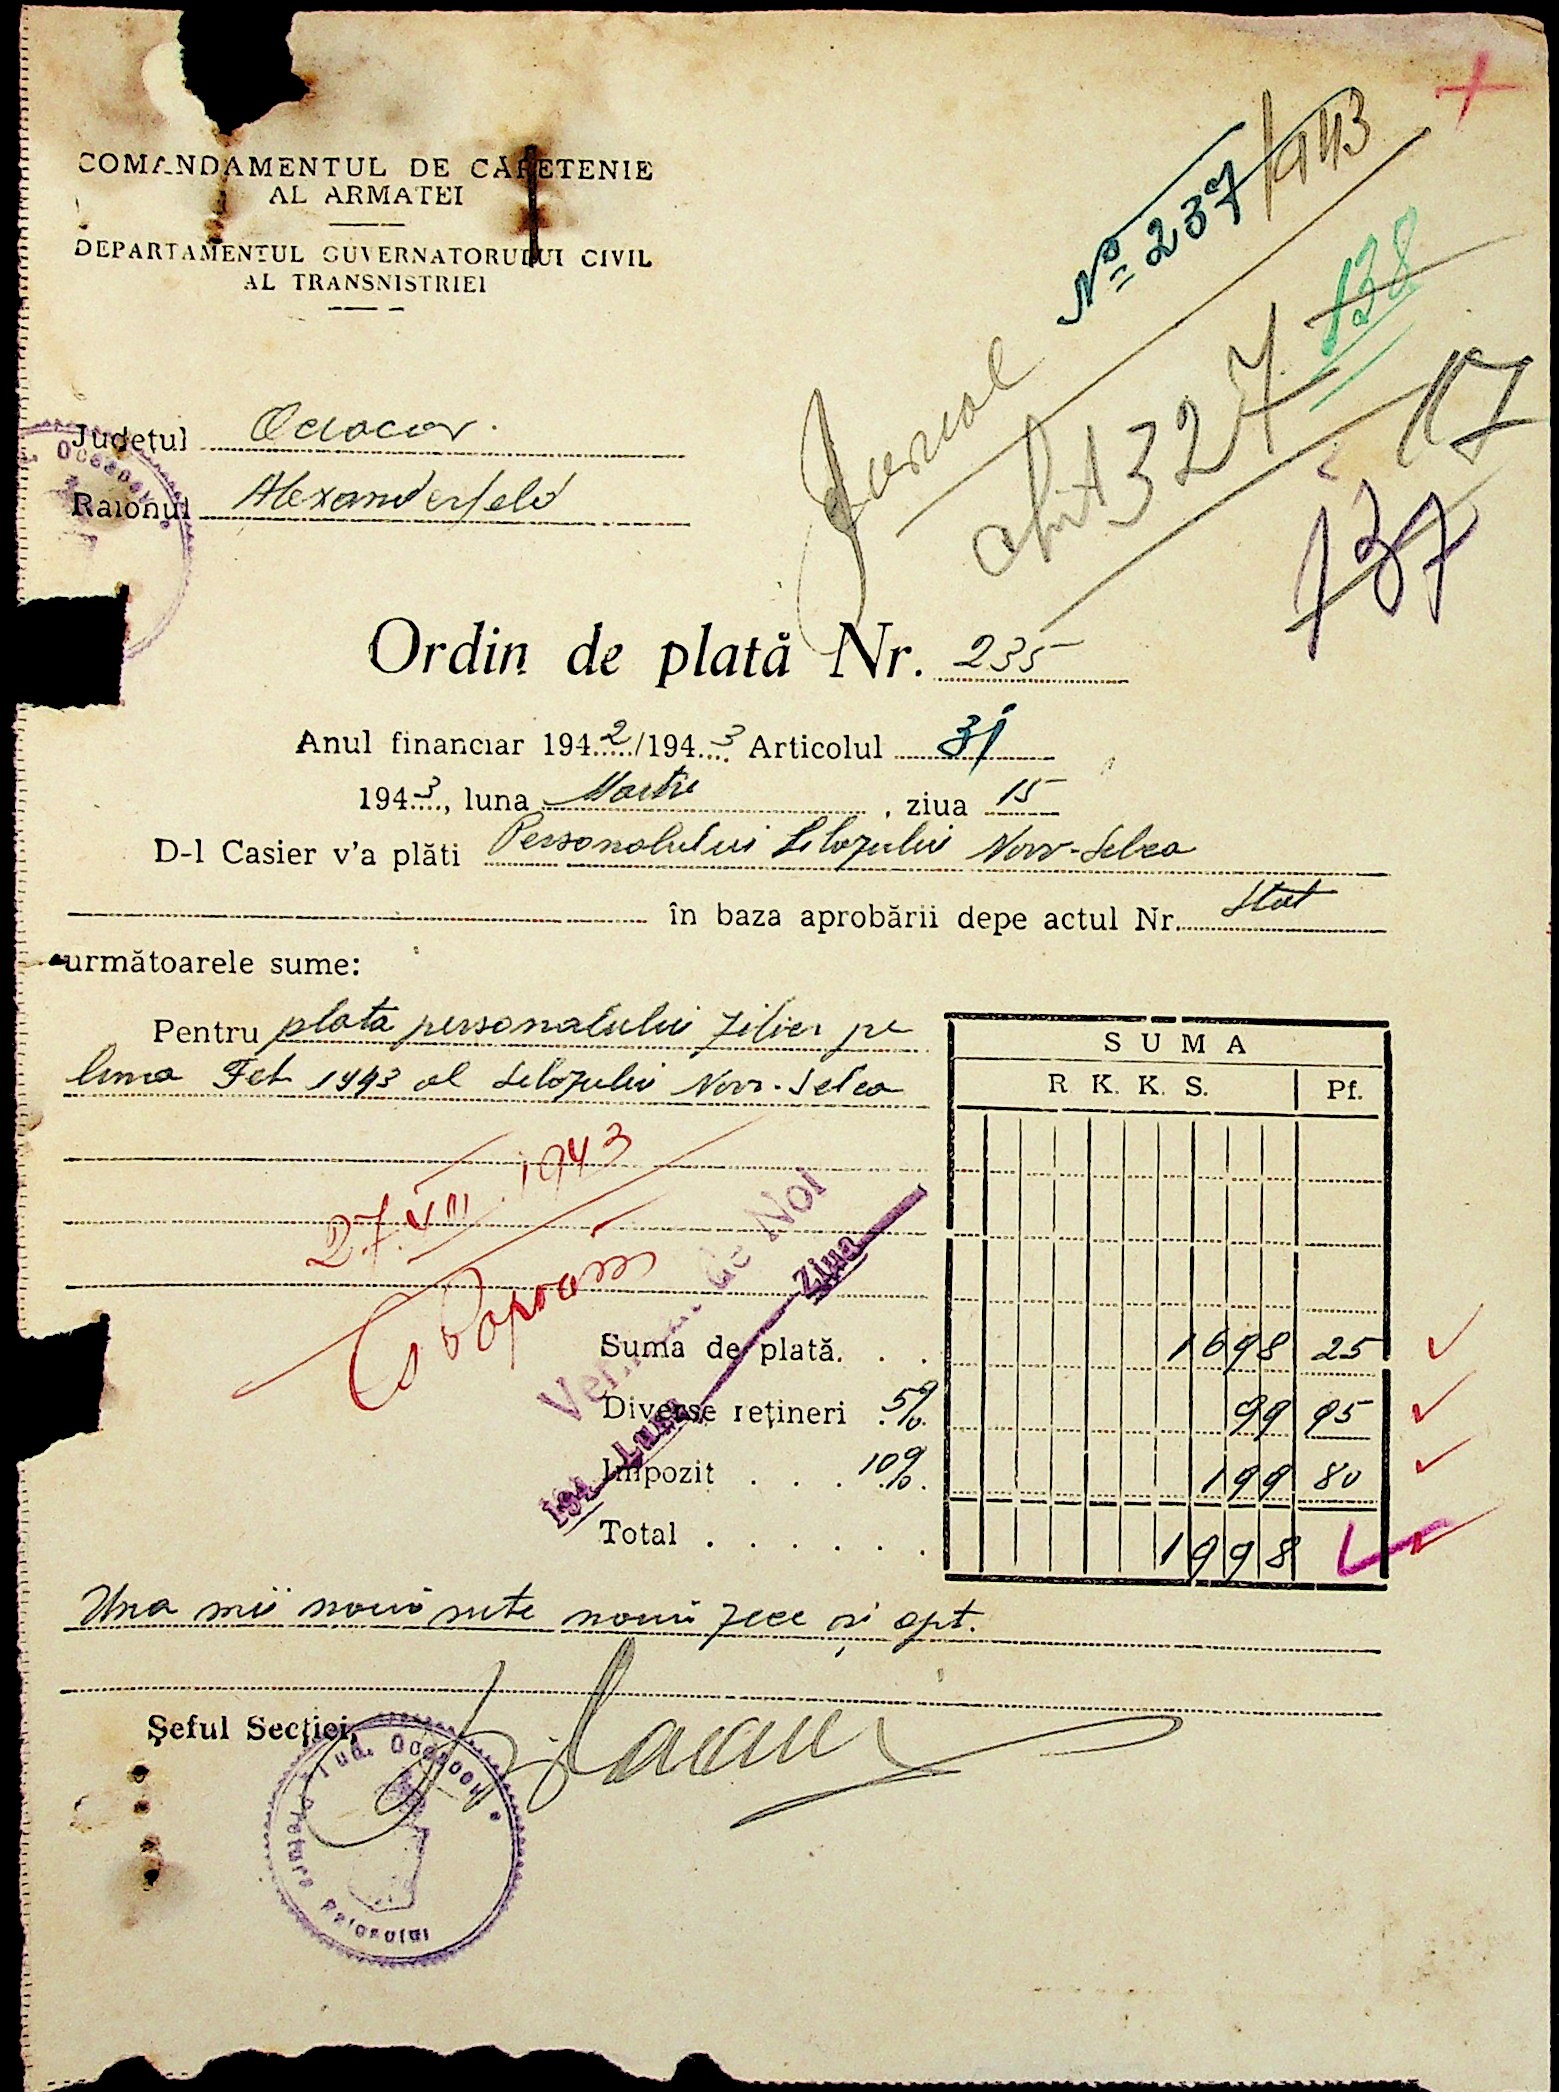 COMANDAMENTUL DE CAPETENIE
AL ARMATEI
DEPARTAMENTUL GUVERNATORULUI CIVIL
AL TRANSNISTRIEI
Nº 237/943
Jurnal
chit 327
138
17
137
Judeţul Oceacov.
Raionul Alexanderfeld
Ordin de plată Nr. 235
Anul financiar 1942/1943 Articolul 31
1943, luna Martie, ziua 15
D-l Casier v'a plăti Personalului Silozului Novo-Selca
în baza aprobării depe actul Nr. Stat
următoarele sume:
Pentru plata personalului zilier pe
luna Feb 1943 al Silozului Novo-Selca
SUMA
R K. K. S. Pf.
27.VIII.1943
Verificat de Noi
194 Luna Ziua
Suma de plată. . . 1698 25
Diverse reţineri 5% 99 95
Impozit . . . 10% 199 80
Total . . . . . . 1998
Una mii nouă sute nouă zece și opt.
Şeful Secţiei,
Pretura Raionului Jud. Oceacov